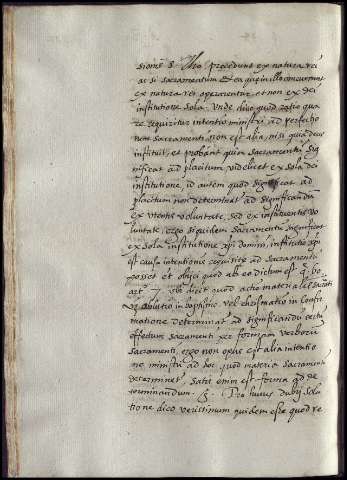 sione 3. Non procedunt ex natura rei
ac si sacramentum et ea qua in illo concurrunt
ex natura rei operarentur, et non ex dei
institutione sola. Unde dico quod ratio qua
re requiritur intentio ministri ad perfectio
nem sacramenti, non est alia, nisi quia deus
instituit, et probant quia sacramentum sig
nificat ad placitum videlicet ex sola dei
institutione, id autem quod significat ad
placitum non determinat ad significandum
ex utentis voluntate, sed ex instituentis vo
luntate, ergo siquidem sacramentum significat
ex sola institutione xpi domini, institutio xpi
est causa intentionis requisite ad sacramentum
posset et obijci quod ab eo dictum est q. 60
art. 7. ubi dicit quod actio materialis
ablutio in baptismo. vel chrismatio in confir
matione determinat ad significandum certum
effectum sacramenti per formam verborum
sacramenti, ergo non opus est alia intentio
ne ministri ad hoc quod materia sacramenti
determinet, satis enim est forma ad de
terminandum. Pro huius dubij solu
tione dico verissimum quidem esse quod re